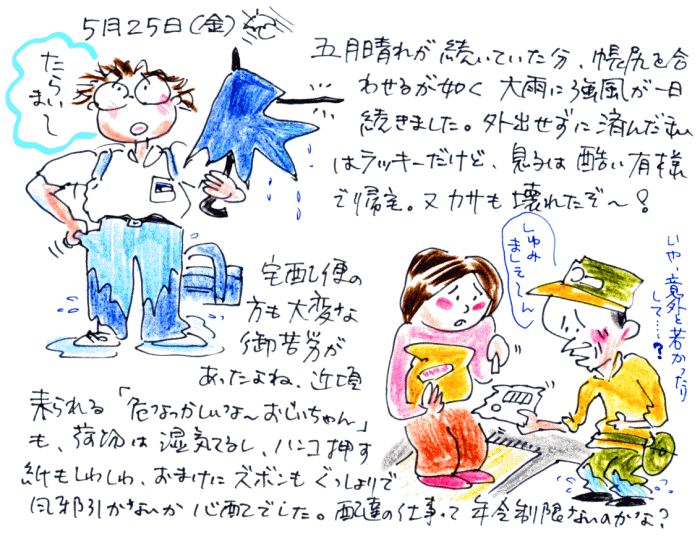 5月25日(金)
たらいまし
五月晴れが続いていた分、帳尻を合
わせるが如く 大雨に強風が一日
続きました。外出せずに済んだ私
はラッキーだけど、息子は酷い有様
で帰宅。又カサも壊れたぞ〜?
宅配便の
方も大変な
御苦労が
あったよね、近頃
来られる「危なっかしいな〜おじいちゃん」
も、荷物は湿気てるし、ハンコ押す
紙もしわしわ、おまけにズボンもぐっしょりで
風邪引かないか心配でした。配達の仕事って年令制限ないのかな?
しゅみ
ましぇ〜ん
いや、意外と若かったり
して…?